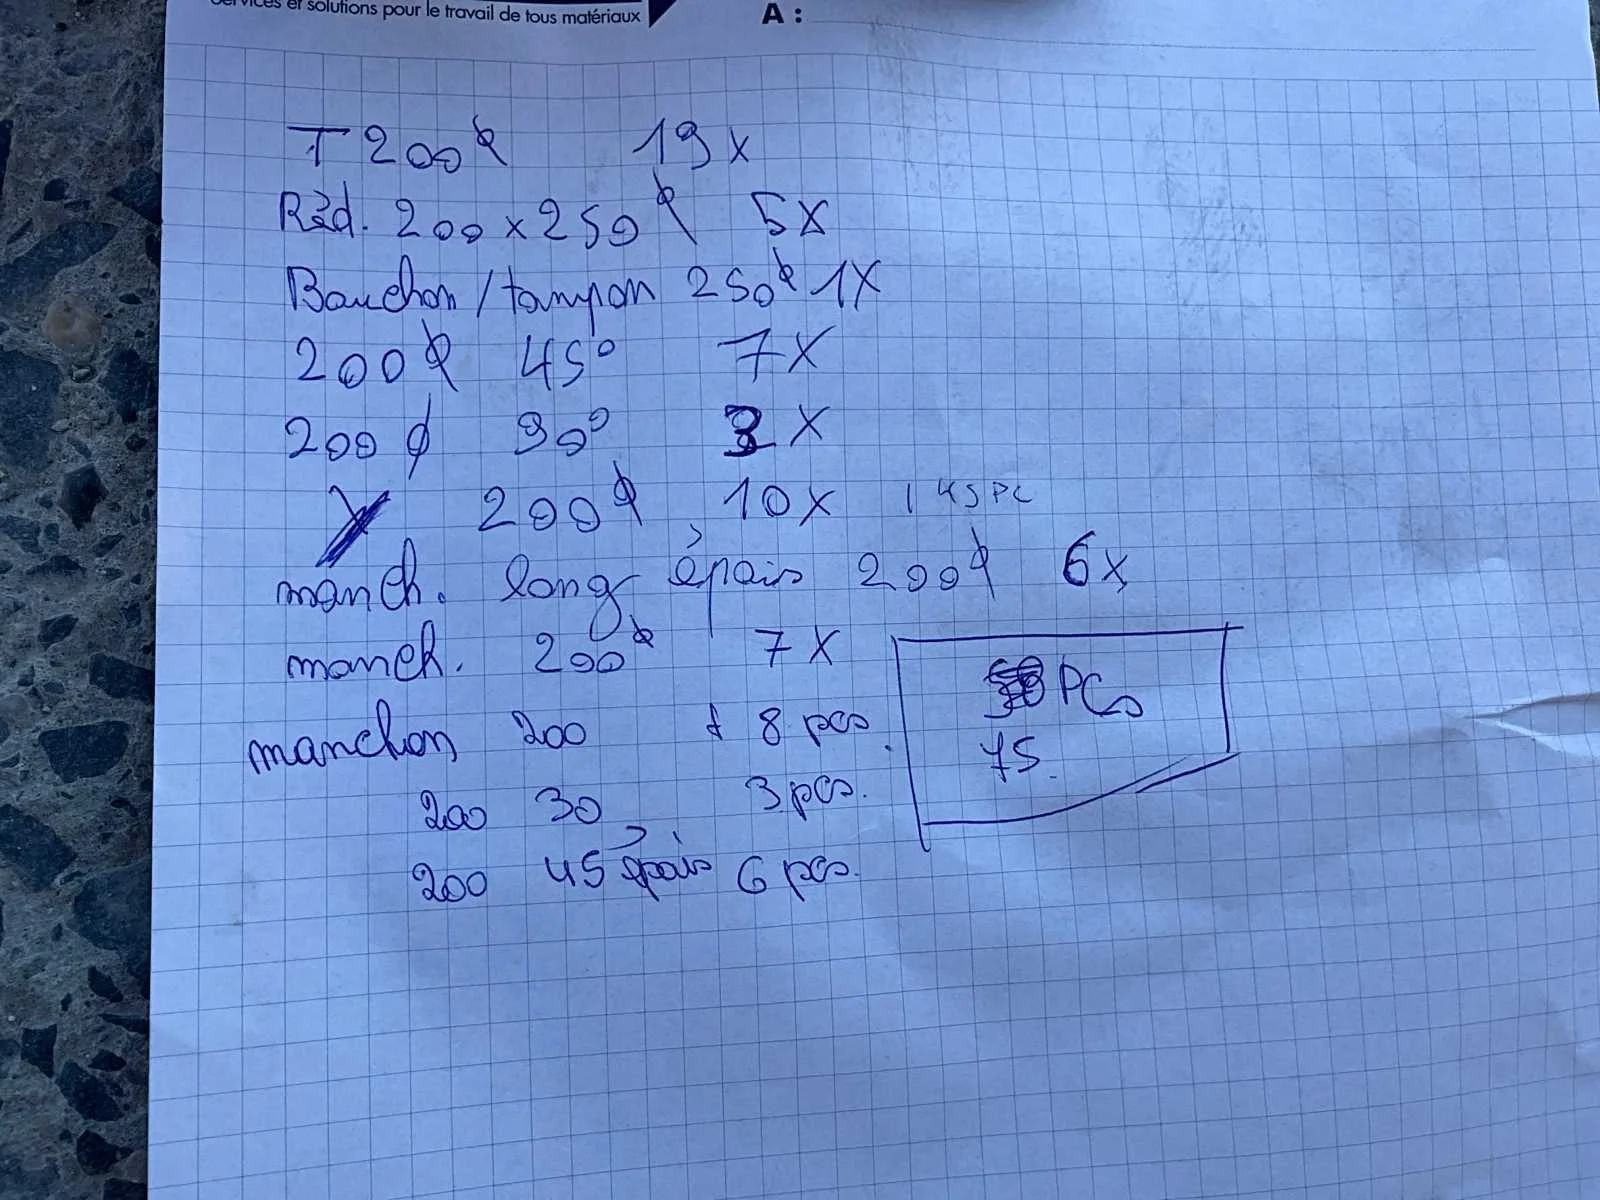 Services et solutions pour le travail de tous matériaux
A :
T 200ϕ 19x
Réd. 200x250ϕ 5x
Bouchon/tampon 250ϕ 1x
200ϕ 45° 7x
200ϕ 90° 3x
Y 200ϕ 10x 1 45 PC
manch. long épais 200ϕ 6x
manch. 200ϕ 7x
manchon 200 + 8 pcs.
200 30 3 pcs.
200 45 épais 6 pcs.
PCs
75.